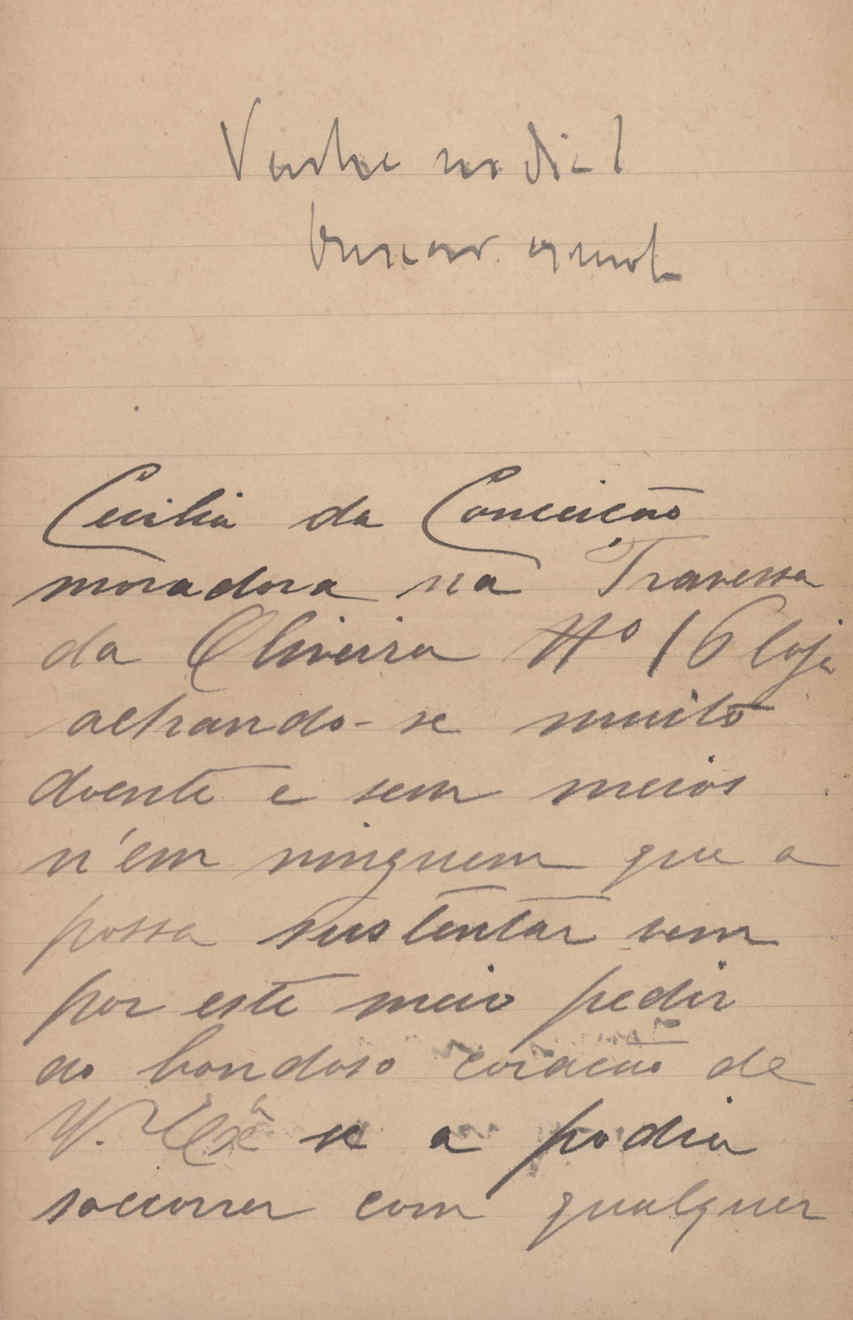 Venha no dia 1
buscar esmola
Cecilia da Conceicão
moradora na Travessa
da Oliveira Nº 16 loja
achando-se muito
doente e sem meios
n'em ninguem que a
possa sustentar vem
por este meio pedir
ao bondoso coracão de
V. Exª se a podia
soccorrer com qualquer